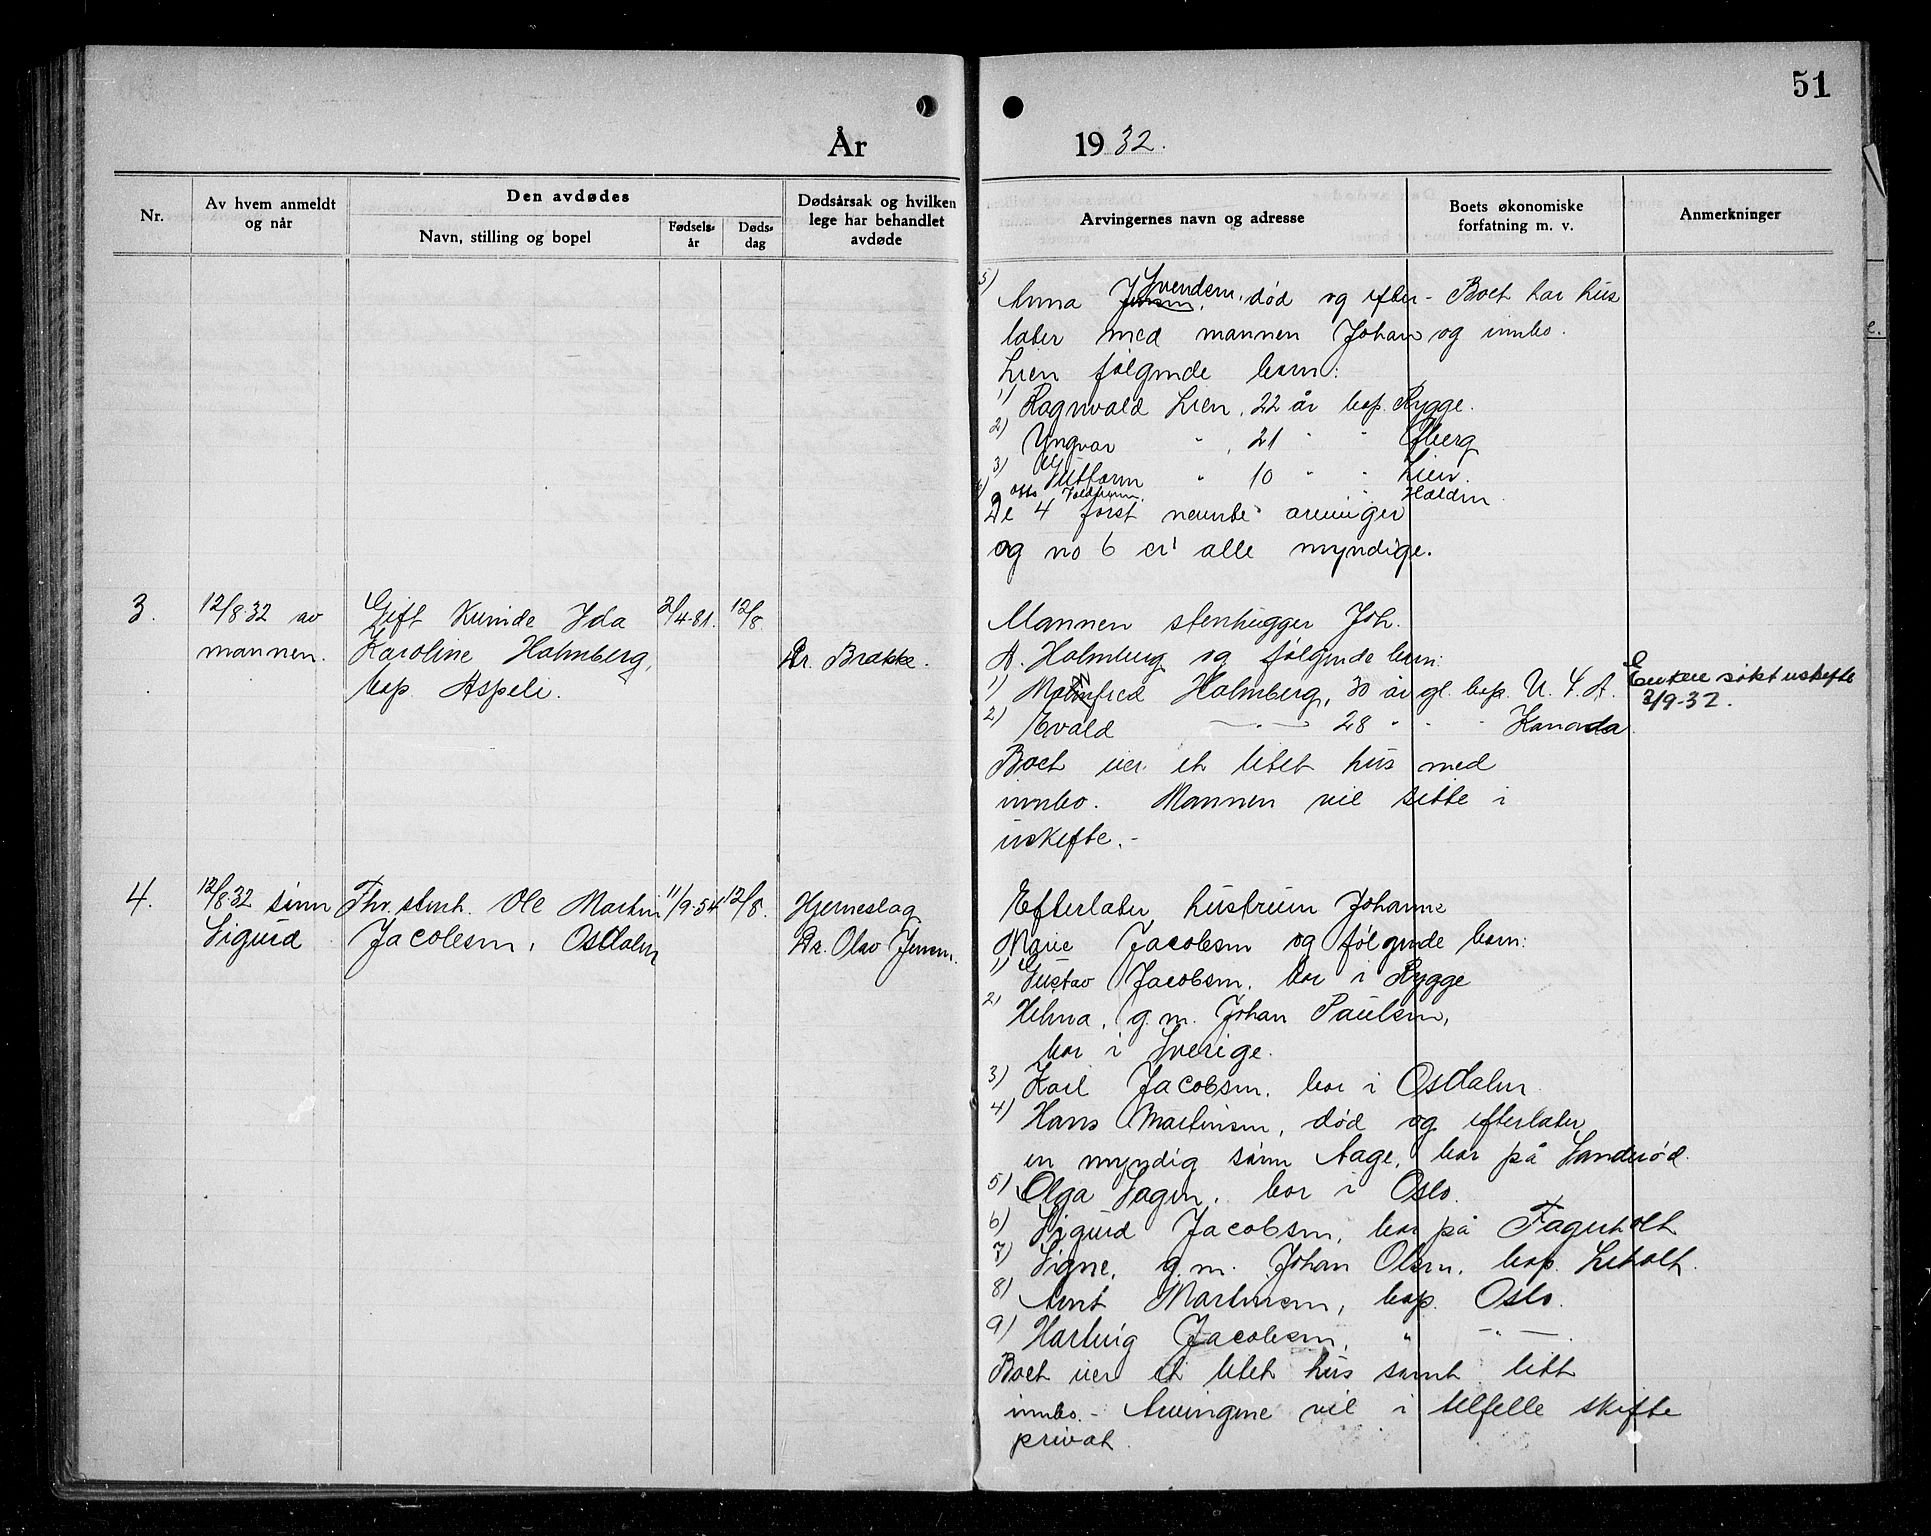 51
År 1932.
Nr.
Av hvem anmeldt og når
Den avdødes
Navn, stilling og bopel
Fødselsår
Dødsdag
Dødsårsak og hvilken lege har behandlet avdøde
Arvingernes navn og adresse
Boets økonomiske forfatning m. v.
Anmerkninger
5) Anna Jensen, Svendsen, død og efter- Boet har hus
later med mannen Johan og innbo.
Lien følgende barn:
1) Ragnvald Lien, 22 år bop. Rygge.
2) Yngvar " , 21 " " Øberg
3) Guttorm " 10 " " Lien.
4) Halden.
De 4 først nevnte arvinger
og no 6 er alle myndige.
3.
12/8 32 av
mannen.
Gift kvinde Ida
Karoline Holmberg,
bop. Aspeli.
2/4-81.
12/8.
Dr. Brække.
Mannen stenhugger Joh.
A. Holmberg og følgende barn:
1) Manfred Holmberg, 30 år gl. bop. U. S. A.
2) Evald —"— 28 " " Kanada.
Boet eier et litet hus med
innbo. Mannen vil sitte i
uskifte.-
Enkem søkt uskifte
2/9-32.
4.
12/8 32 sønn
Sigurd
Fhv. stenh. Ole Martin
Jacobsen, Osdalen
11/9-54
12/8.
Hjerneslag
Dr. Olav Jensen.
Efterlater hustruen Johanne
Marie Jacobsen og følgende barn:
1) Gustav Jacobsen, bor i Rygge
2) Helma, g. m. Johan Paulsen,
bor i Sverige.
3) Karl Jacobsen, bor i Osdalen
4) Hans Martinsen, død og efterlater
en myndig sønn Aage, bor på Sanderød.
5) Olga Sagen, bor i Oslo.
6) Sigurd Jacobsen, bor på Fagerholt
7) Signe, g. m. Johan Olsen, bop. Liholt.
8) Arnt Martinsen, bop. Oslo.
9) Hartvig Jacobsen, " —"—.
Boet eier et litet hus samt litt
innbo.- Arvingene vil i tilfelle skifte
privat.